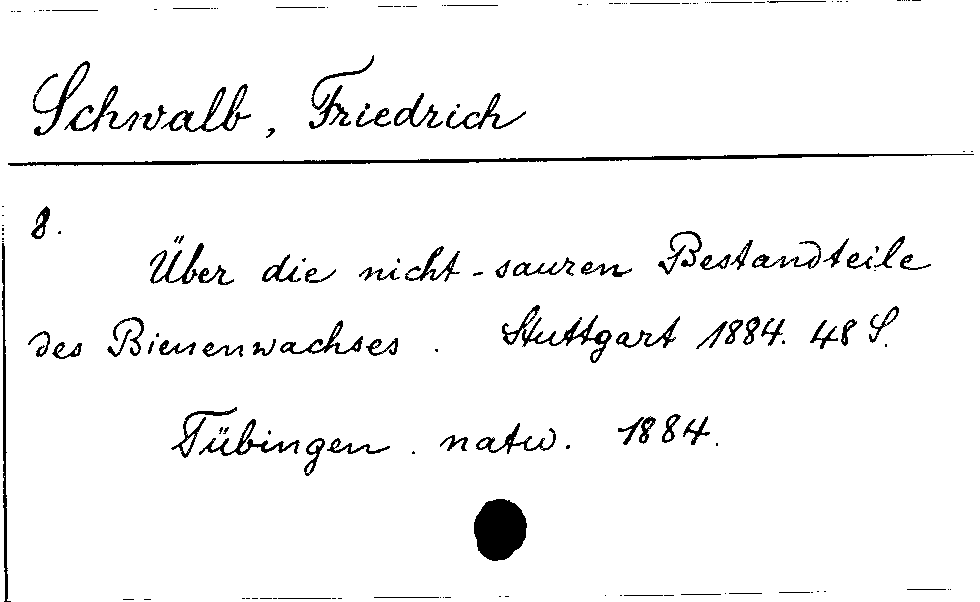 Schwalb, Friedrich
8.
Über die nicht-sauren Bestandteile
des Bienenwachses. Stuttgart 1884. 48 S.
Tübingen. natw. 1884.